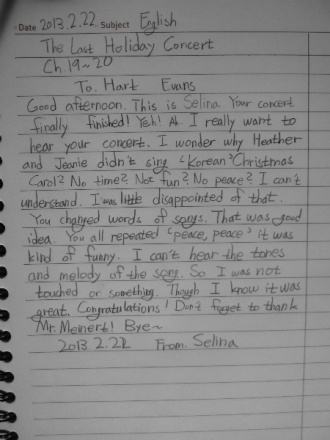 Date 2013.2.22 Subject English
The Last Holiday Concert
Ch.19~20
To. Hart Evans
Good afternoon. This is Selina. Your concert
finally finished! Yeh! Ah I really want to
hear your concert. I wonder why Heather
and Jeanie didn't sing 'Korean' Christmas
Carol? No time? Not fun? No peace? I can't
understand. I was little disappointed of that.
You changed words of songs. That was good
idea. You all repeated 'peace, peace' it was
kind of funny. I can't hear the tones
and melody of the song. So I was not
touched or something. Though I know it was
great. Congratulations! Don't forget to thank
Mr. Meinert! Bye~
2013 2.22 From. Selina